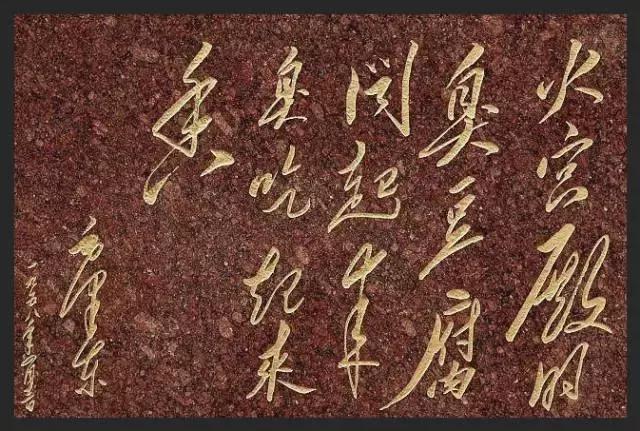 火宫殿的
臭豆腐
闻起来
臭吃起来
香
毛泽东
一九五八年四月